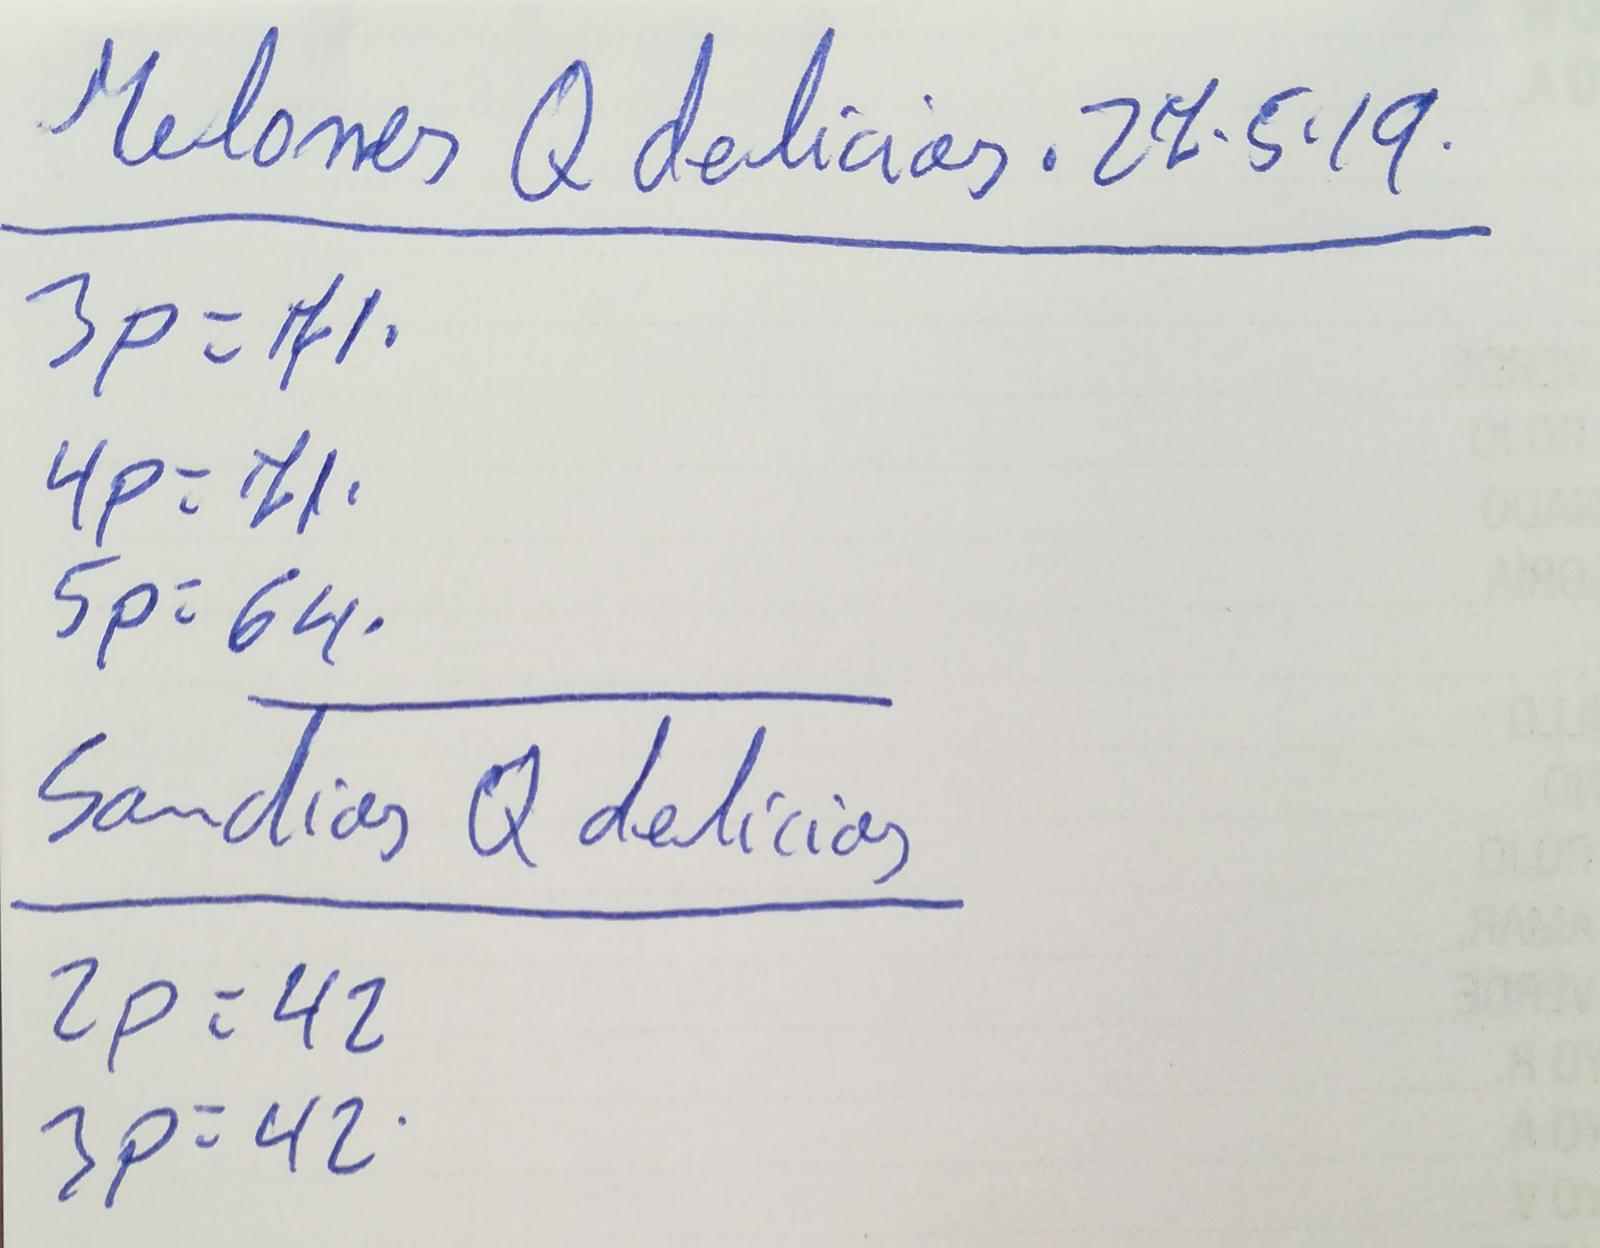 Melones Q delicias. 27.5.19.
3p=71.
4p=71.
5p=64.
Sandias Q delicias
2p=42
3p=42.